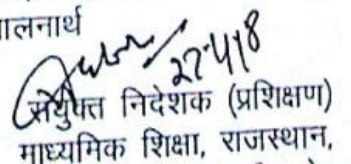 पालनार्थ
27-4-18
संयुक्त निदेशक (प्रशिक्षण)
माध्यमिक शिक्षा, राजस्थान,